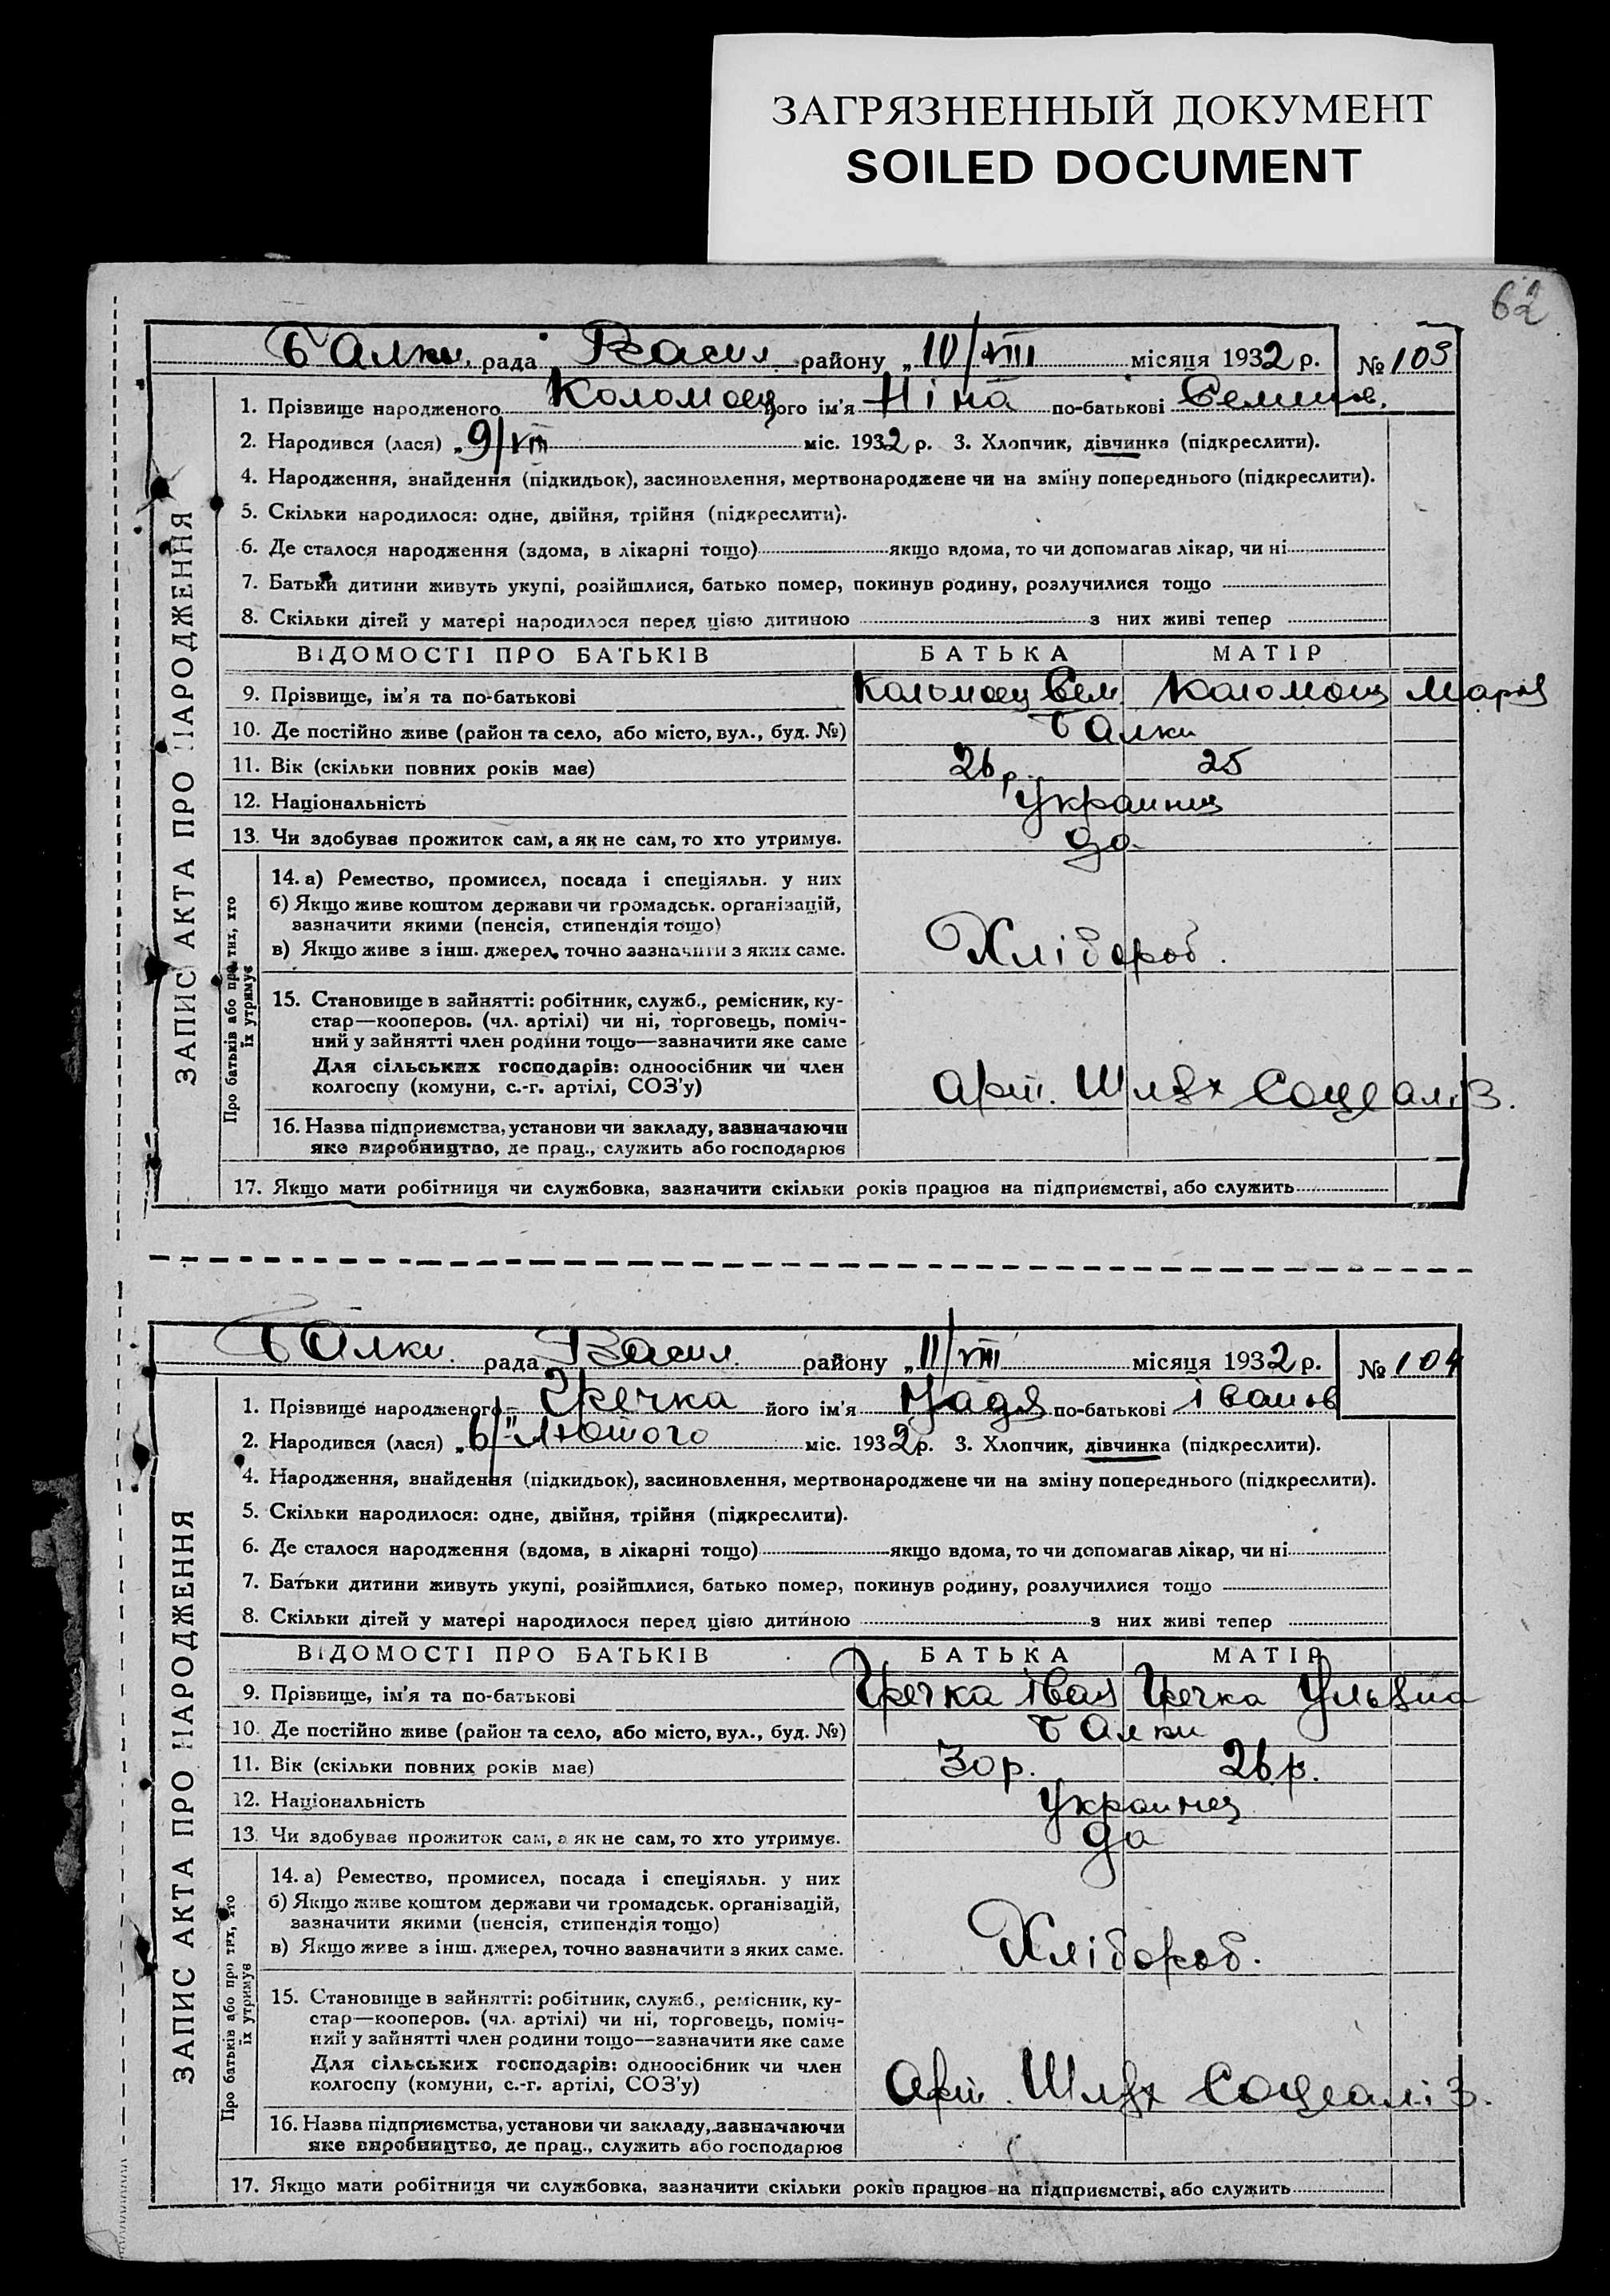 ЗАГРЯЗНЕННЫЙ ДОКУМЕНТ
SOILED DOCUMENT
62
Балки рада Васил району „10/VIII місяця 1932 р. № 103
1. Прізвище народженого Коломоец його ім'я Ніна по-батькові Семенов.
2. Народився (лася) „9/VIII міс. 1932 р. 3. Хлопчик, дівчинка (підкреслити).
4. Народження, знайдення (підкидьок), засиновлення, мертвонароджене чи на зміну попереднього (підкреслити).
5. Скільки народилося: одне, двійня, трійня (підкреслити).
6. Де сталося народження (вдома, в лікарні тощо) якщо вдома, то чи допомагав лікар, чи ні
7. Батьки дитини живуть укупі, розійшлися, батько помер, покинув родину, розлучилися тощо
8. Скільки дітей у матері народилося перед цією дитиною з них живі тепер
ЗАПИС АКТА ПРО НАРОДЖЕННЯ
ВІДОМОСТІ ПРО БАТЬКІВ БАТЬКА МАТІР
9. Прізвище, ім'я та по-батькові Коломоец Сем. Коломоец Мария
10. Де постійно живе (район та село, або місто, вул., буд. №) Балки
11. Вік (скільки повних років має) 26 р. 25
12. Національність Украинец
13. Чи здобуває прожиток сам, а як не сам, то хто утримує. да
Про батьків або про тих, хто їх утримує
14. а) Ремество, промисел, посада і спеціяльн. у них
б) Якщо живе коштом держави чи громадськ. організацій,
зазначити якими (пенсія, стипендія тощо)
в) Якщо живе з інш. джерел, точно зазначити з яких саме. Хлібороб.
15. Становище в зайнятті: робітник, служб., ремісник, ку-
стар—кооперов. (чл. артілі) чи ні, торговець, поміч-
ний у зайнятті член родини тощо—зазначити яке саме
Для сільських господарів: одноосібник чи член
колгоспу (комуни, с.-г. артілі, СОЗ'у) Арт. Шлях Социаліз.
16. Назва підприємства, установи чи закладу, зазначаючи
яке виробництво, де прац., служить або господарює
17. Якщо мати робітниця чи службовка, зазначити скільки років працює на підприємстві, або служить
Балки рада Васил. району „11/VIII місяця 1932 р. № 104
1. Прізвище народженого Гречка його ім'я Надя по-батькові Іванов
2. Народився (лася) „6/II Лютого міс. 1932 р. 3. Хлопчик, дівчинка (підкреслити).
4. Народження, знайдення (підкидьок), засиновлення, мертвонароджене чи на зміну попереднього (підкреслити).
5. Скільки народилося: одне, двійня, трійня (підкреслити).
6. Де сталося народження (вдома, в лікарні тощо) якщо вдома, то чи допомагав лікар, чи ні
7. Батьки дитини живуть укупі, розійшлися, батько помер, покинув родину, розлучилися тощо
8. Скільки дітей у матері народилося перед цією дитиною з них живі тепер
ЗАПИС АКТА ПРО НАРОДЖЕННЯ
ВІДОМОСТІ ПРО БАТЬКІВ БАТЬКА МАТІР
9. Прізвище, ім'я та по-батькові Гречка Іван Гречка Ульяна
10. Де постійно живе (район та село, або місто, вул., буд. №) Балки
11. Вік (скільки повних років має) 30 р. 26 р.
12. Національність Украинец
13. Чи здобуває прожиток сам, а як не сам, то хто утримує. да
Про батьків або про тих, хто їх утримує
14. а) Ремество, промисел, посада і спеціяльн. у них
б) Якщо живе коштом держави чи громадськ. організацій,
зазначити якими (пенсія, стипендія тощо)
в) Якщо живе з інш. джерел, точно зазначити з яких саме. Хлібороб.
15. Становище в зайнятті: робітник, служб., ремісник, ку-
стар—кооперов. (чл. артілі) чи ні, торговець, поміч-
ний у зайнятті член родини тощо—зазначити яке саме
Для сільських господарів: одноосібник чи член
колгоспу (комуни, с.-г. артілі, СОЗ'у) Арт. Шлях Социаліз.
16. Назва підприємства, установи чи закладу, зазначаючи
яке виробництво, де прац., служить або господарює
17. Якщо мати робітниця чи службовка, зазначити скільки років працює на підприємстві, або служить